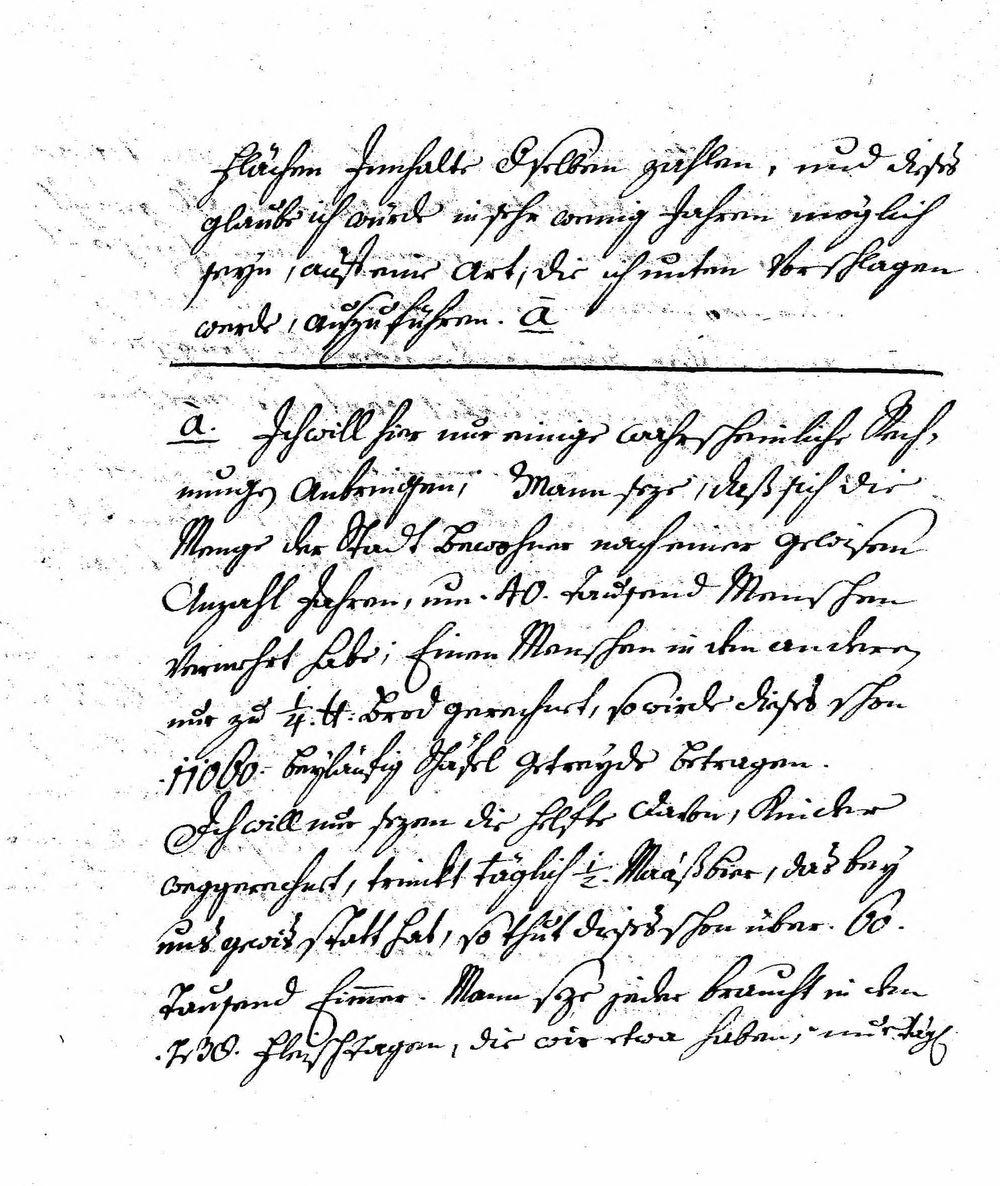 Flächen Innhalte dselben zahlen, und dieses
glaube ich würde in sehr wenig Jahren möglich
seyn, auf eine Art, die ich unten Vorschlagen
werde, auszuführen. a
a. Ich will hier nur einige wahrscheinliche Rech-
nungen Anbringen; Mann seze, daß sich die
Menge der Stadt Bewohner nach einer gewisen
Anzahl Jahren, um. 40. Tausend Menschen
Vermehrt habe; Einen Menschen in den anderen
nur zu 1/4. ℔. Brod gerechnet, so wirde dieses schon
beyläufig Schäfel Getreyde betragen.
Ich will nur sezen die Helfte davon, Kinder
weggerechnet, trinkt täglich 1/2. Maaß bier, das bey
uns gewis statt hat, so thut dieses schon über. 60.
Tausend Eimer. Mann seze jeder braucht in den
Fleischtagen, die wir etwa haben, nur tägl